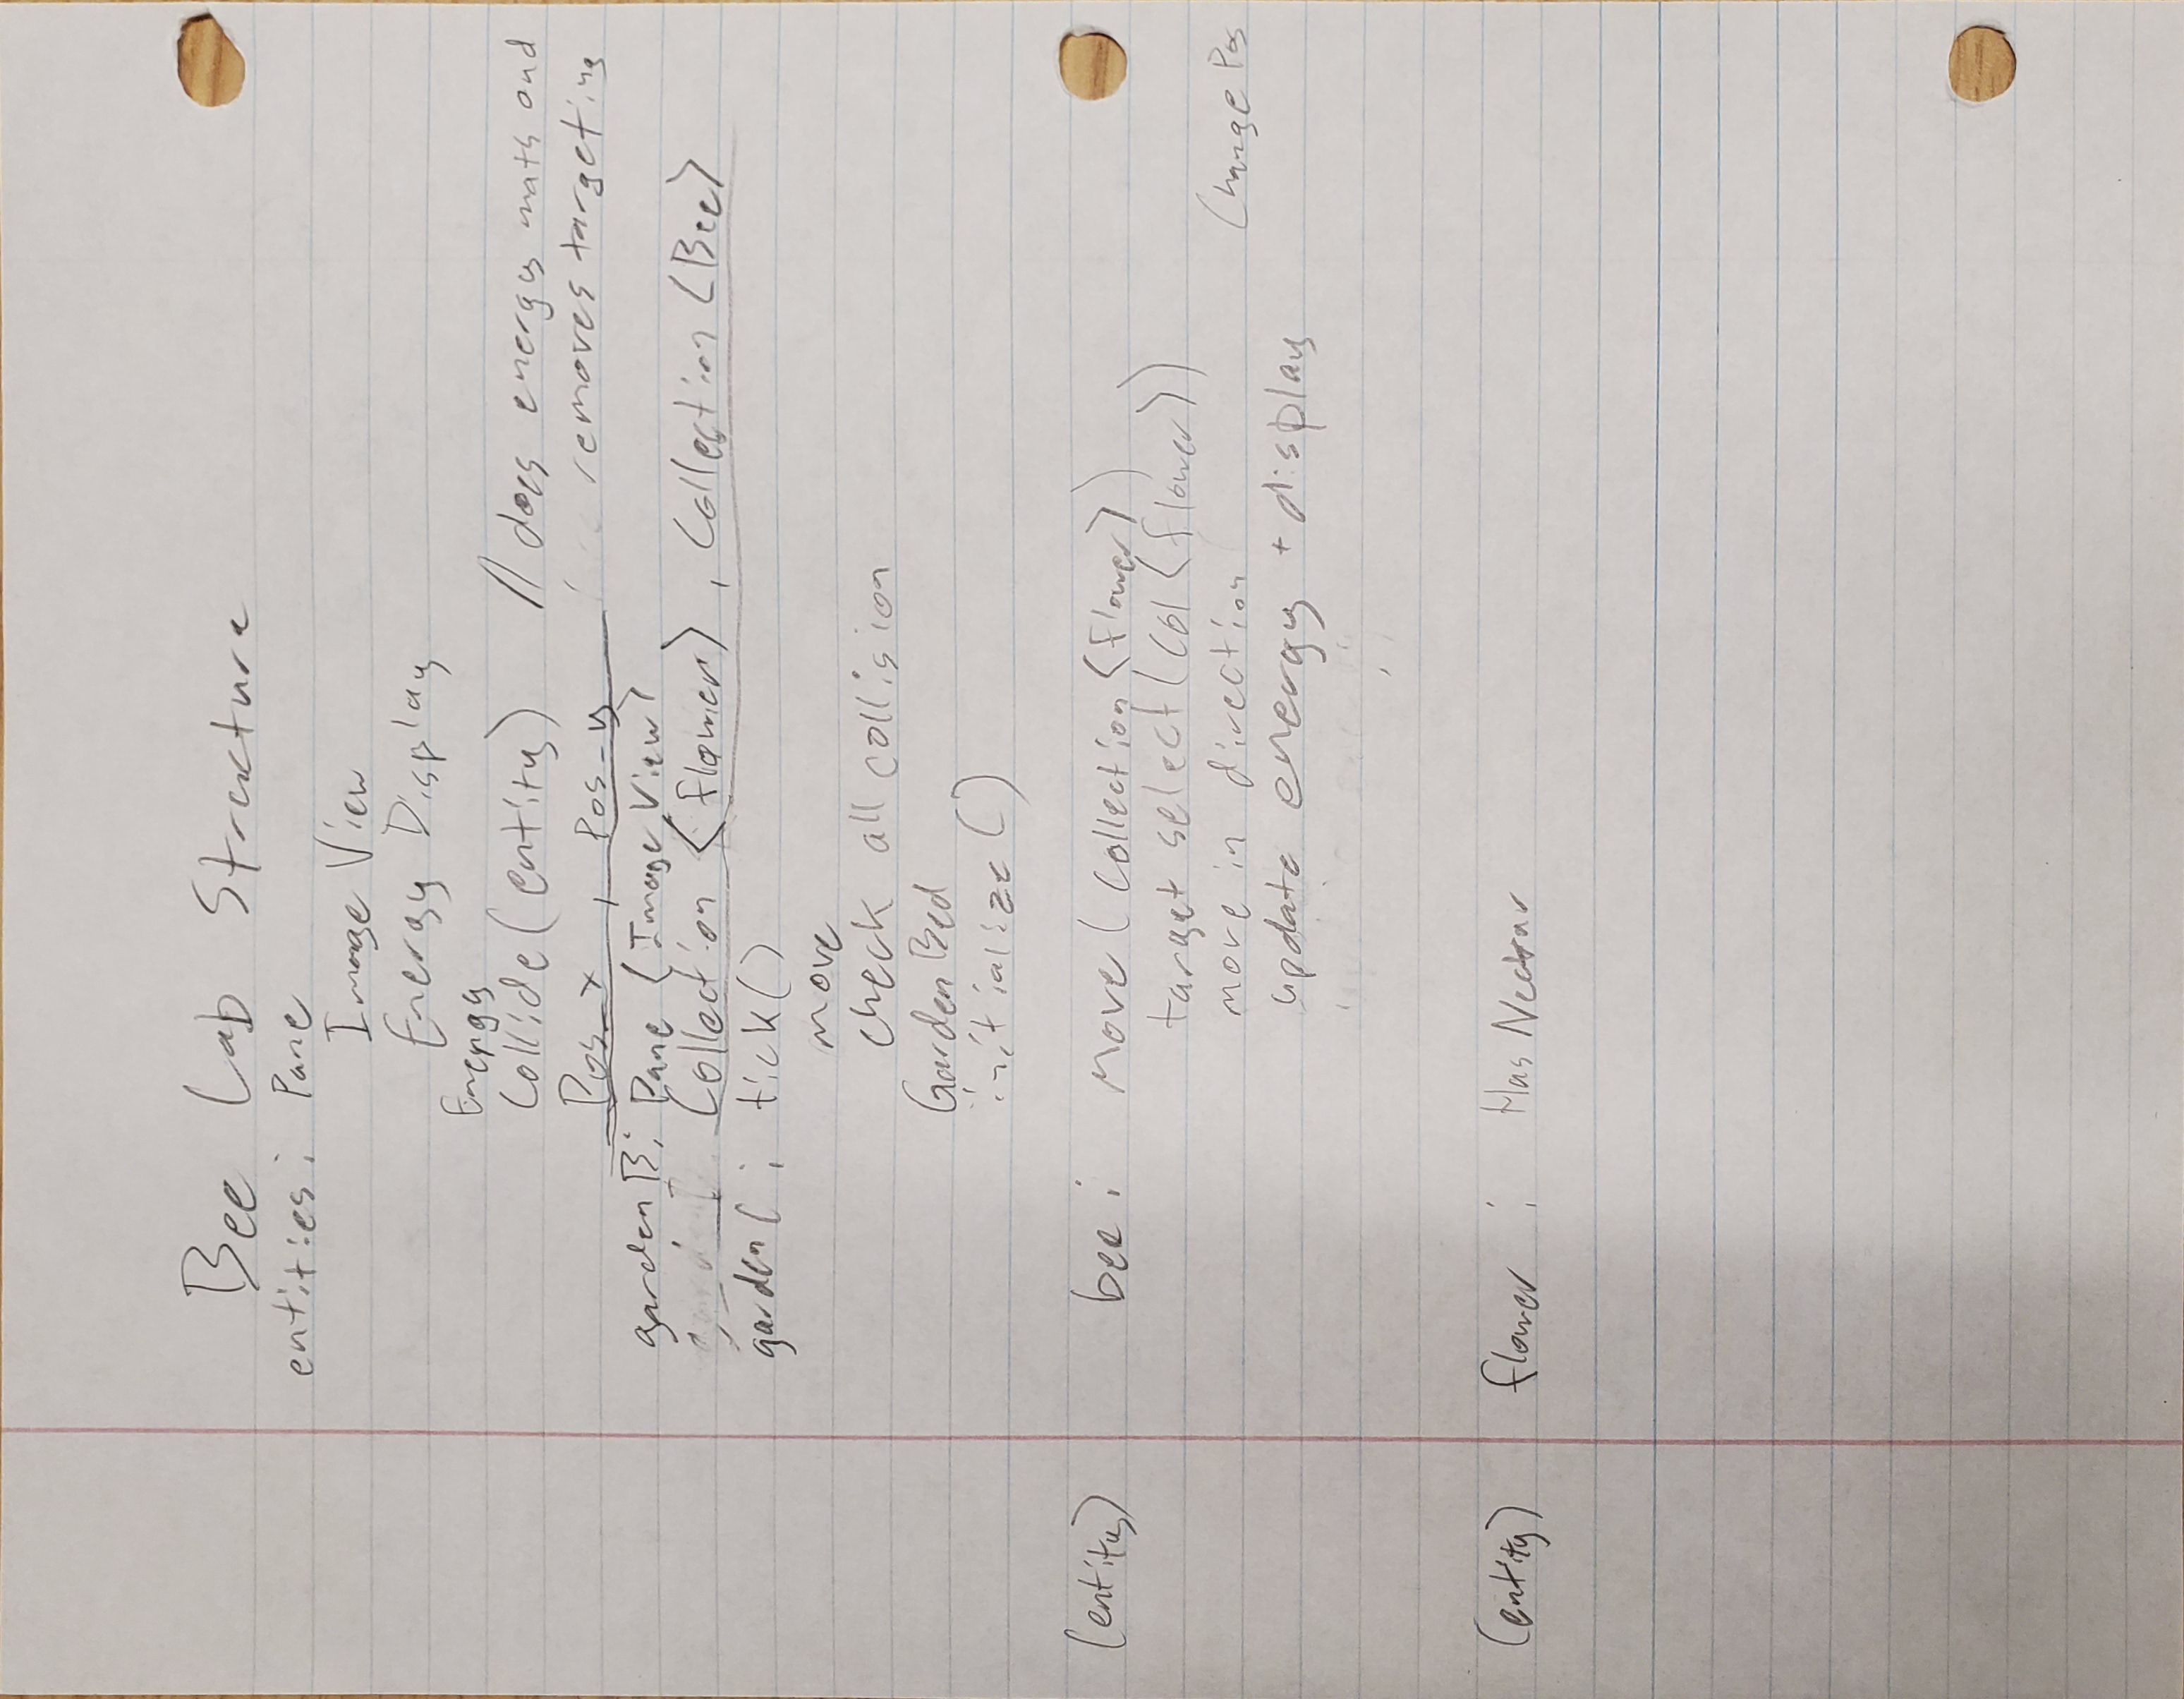 Bee Lab Structure
entities: Pane
Image View
Energy Display
Energy
Collide(entity) // does energy math and
removes targeting
Pos_x , Pos_y
gardenB: Pane (Image View)
Collection <flower>, Collection <Bee>
gardenC: tick()
move
check all collision
Garden Bed
initialize()
(entity) bee: Move(Collection<flower>)
target select(Col<flower>)
move in direction Change Pos
update energy + display
(entity) flower: Has Nectar